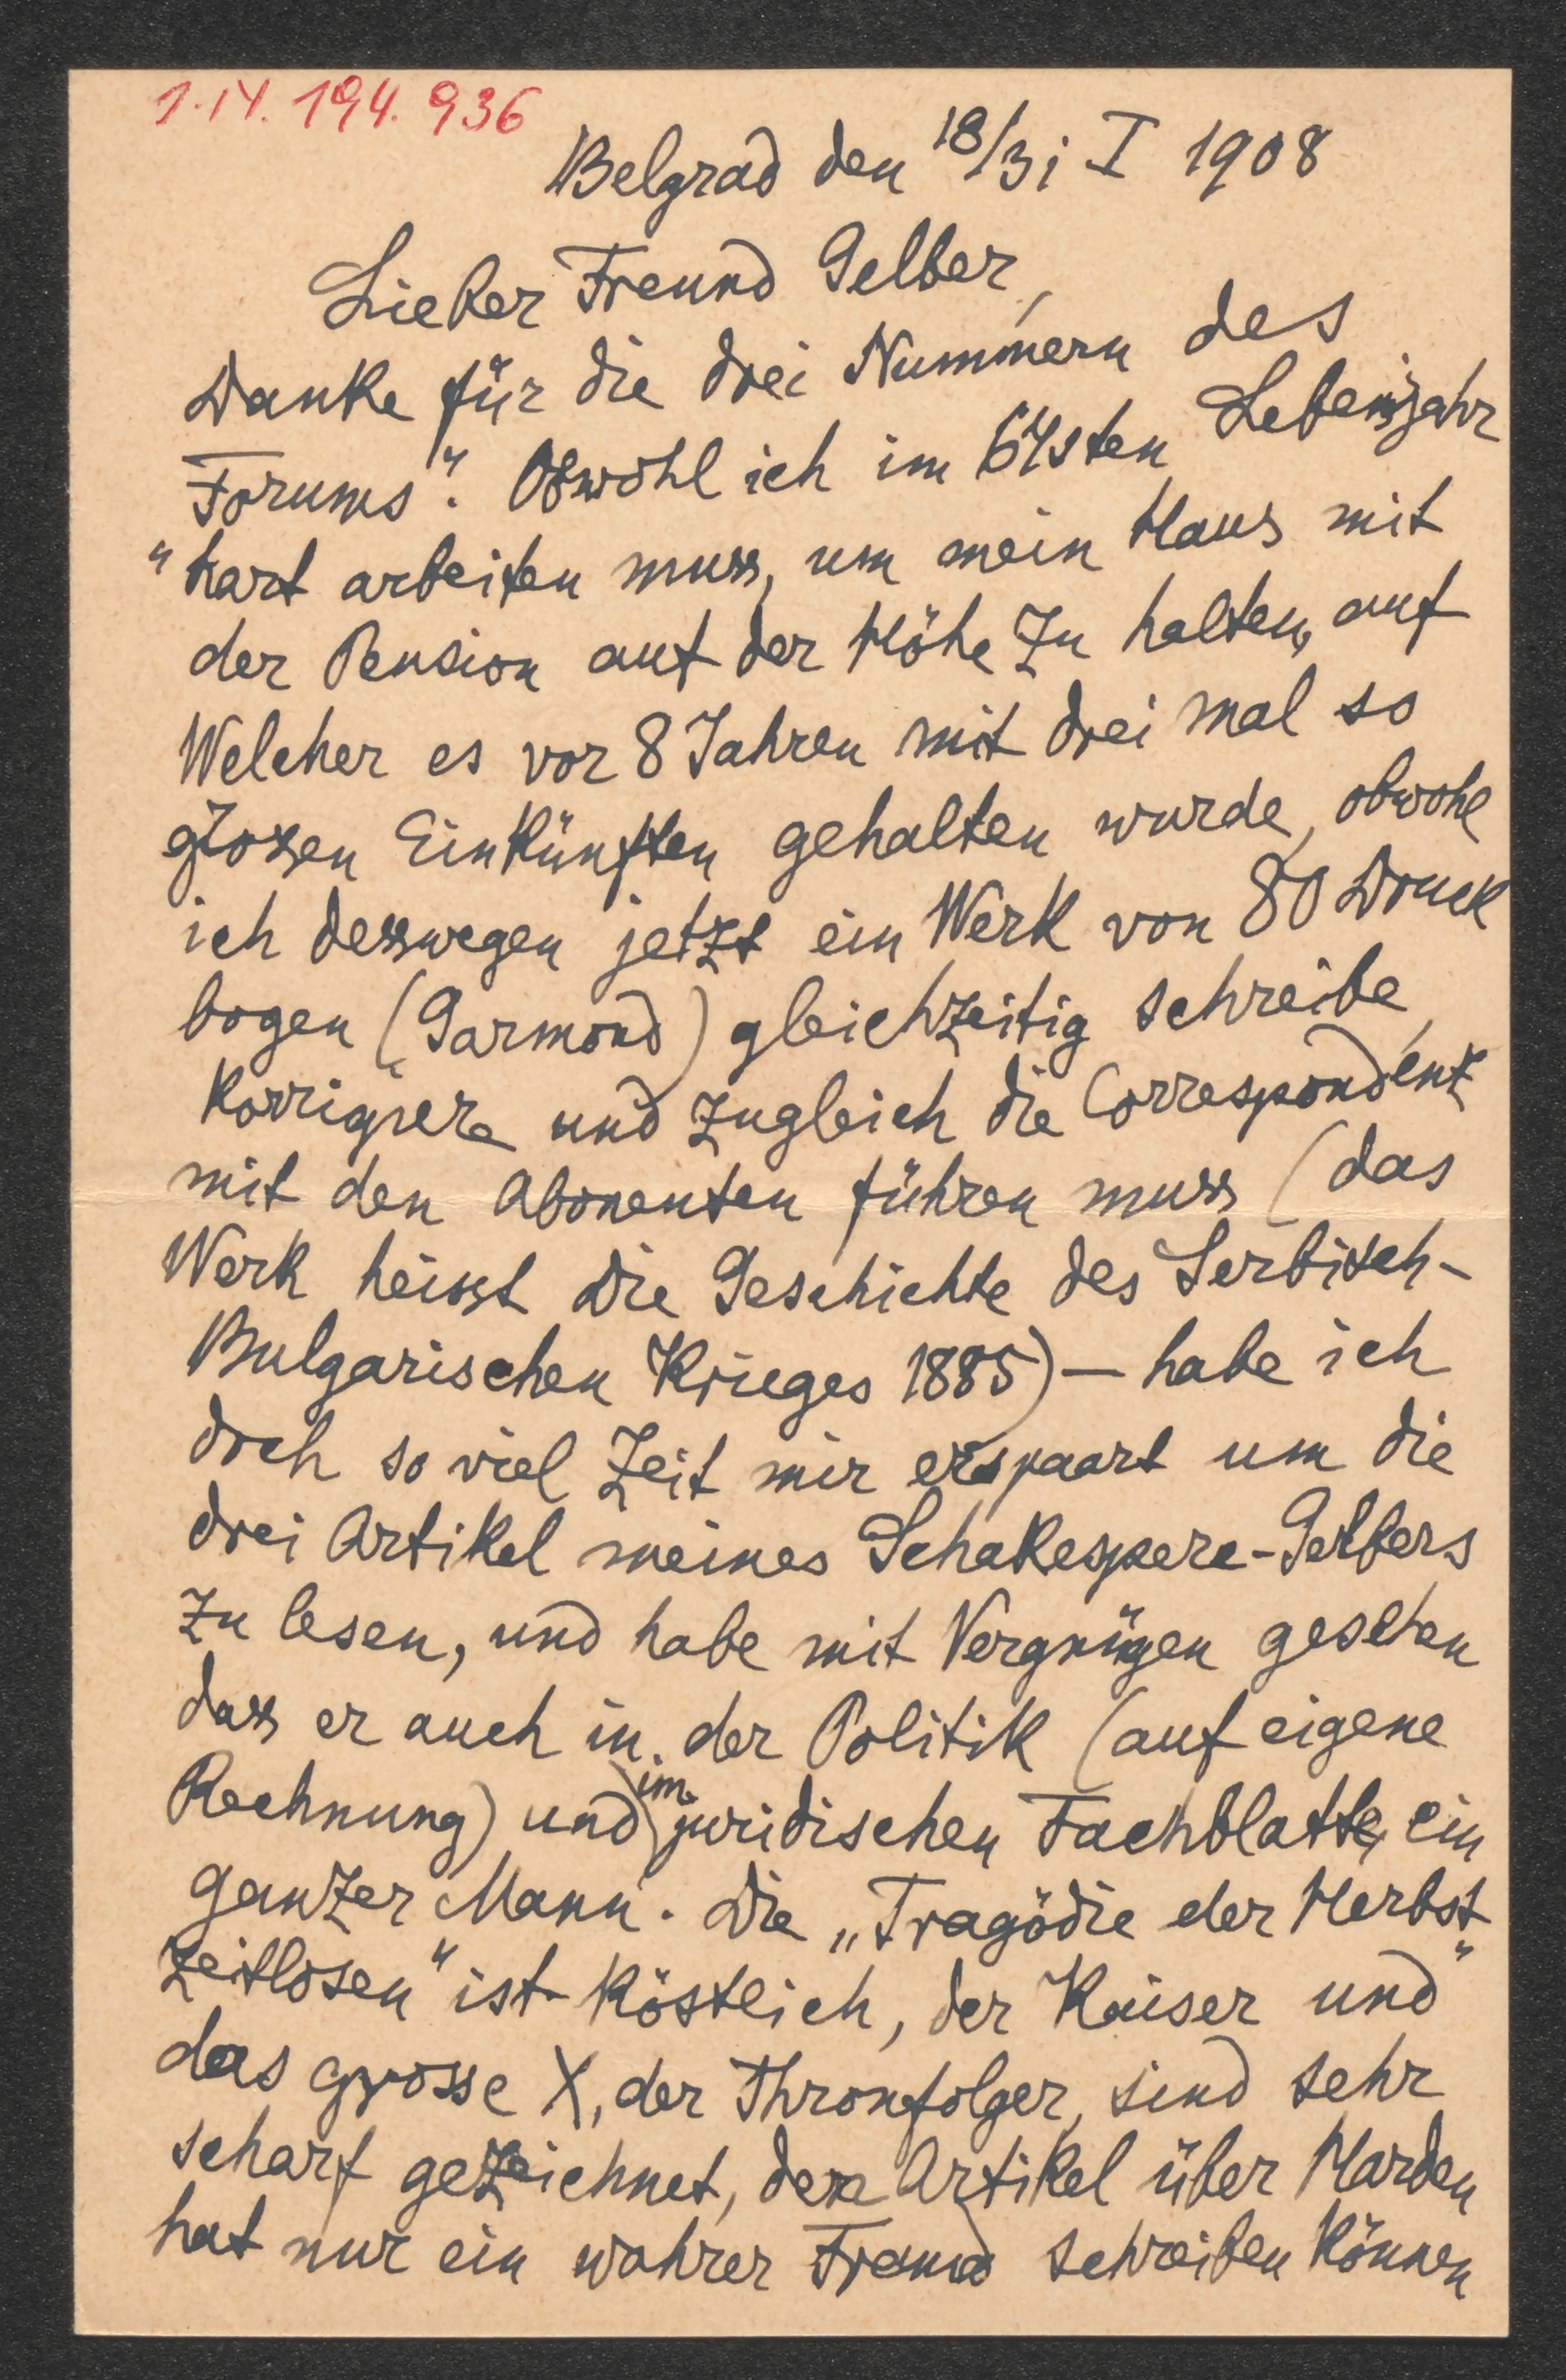 I.N. 194.936
Belgrad den 18/31 I 1908
Lieber Freund Gelber,
Danke für die drei Nummern des
Forums". Obwohl ich im 64sten Lebensjahr
"hart arbeiten muss, um mein Haus mit
der Pension auf der Höhe zu halten, auf
Welcher es vor 8 Jahren mit drei mal so
grossen Einkünften gehalten wurde, obwohl
ich desswegen jetzt ein Werk von 80 Druck
bogen (Garmond) gleichzeitig schreibe,
korrigiere und zugleich die Correspondenz
mit den Abonenten führen muss (das
Werk heisst Die Geschichte des Serbisch-
Bulgarischen Krieges 1885) — habe ich
doch so viel Zeit mir erspaart um die
drei Artikel meines Schakespere-Gelbers
zu lesen, und habe mit Vergnügen gesehen
dass er auch in der Politik (auf eigene
Rechnung) und im juridischen Fachblatte, ein
ganzer Mann. Die „Tragödie der Herbst
zeitlosen" ist köstlich, der Kaiser und"
das grosse X, der Thronfolger, sind sehr
scharf gezeichnet, den Artikel über Harden
hat nur ein wahrer Freund schreiben können